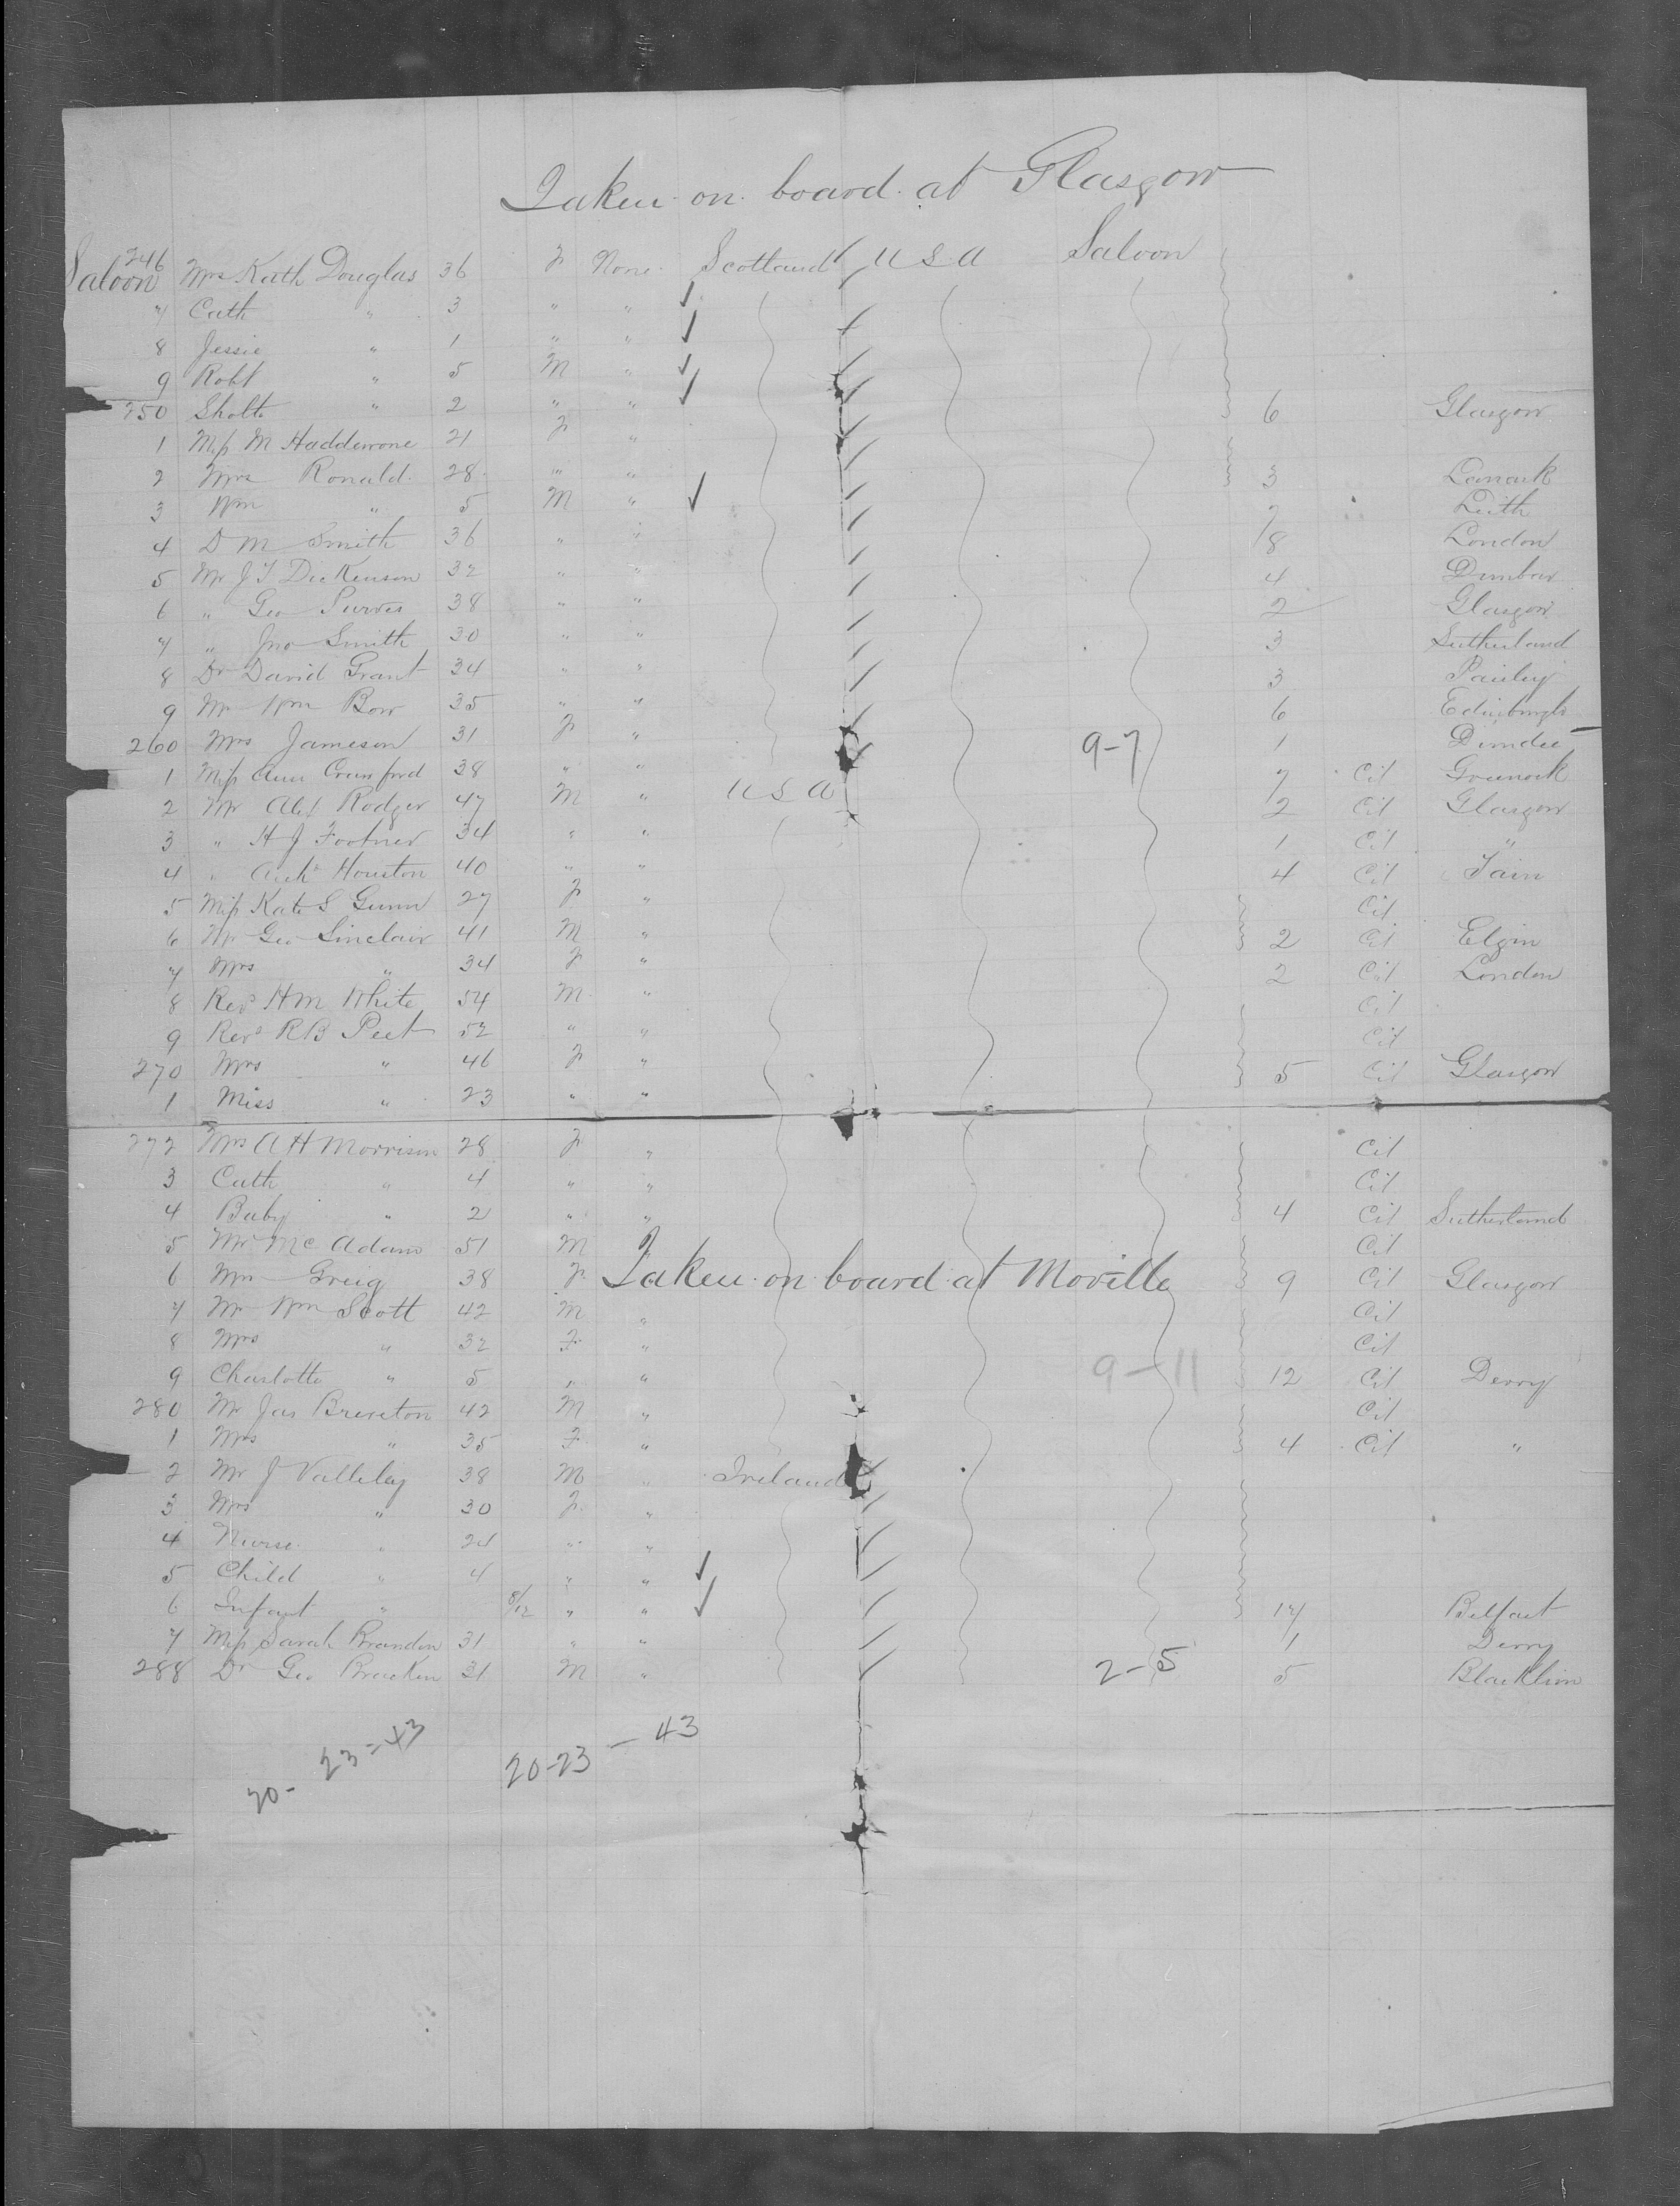 Taken on board at Glasgow
Saloon 246 Mrs Kath Douglas 36 F None Scotland U S A Saloon
7 Cath " 3 " "
8 Jessie " 1 " "
9 Robt " 5 M "
250 Sholto " 2 " " 6 Glasgow
1 Miss M 21 F "
2 Mrs Ronald 28 " " 3 Lanark
3 Wm " 5 M " 7 Leith
4 D M Smith 36 " " 8 London
5 Mr J T Dickenson 32 " " 4 Dunbar
6 " Geo Purves 38 " " 2 Glasgow
7 " Jno Smith 30 " " 3 Sutherland
8 Dr David Grant 34 " " 3 Paisley
9 Mr Wm Bow 35 " " 6 Edinburgh
260 Mrs Jameson 31 F " 9-7 1 Dundee
1 Miss Ann Crawford 38 " " 7 Cit Greenock
2 Mr Alex Rodger 47 M " U S A 2 Cit Glasgow
3 " H J Footner 34 " " 1 Cit "
4 " Archd Houston 40 " " 4 Cit Tain
5 Miss Kate S Gunn 27 F " Cit
6 Mr Geo Sinclair 41 M " 2 Cit Elgin
7 Mrs " 34 F " 2 Cit London
8 Revd H M White 54 M " Cit
9 Revd R B Peet 52 " " Cit
270 Mrs " 46 F " 5 Cit Glasgow
1 Miss " 23 " "
272 Mrs A H Morrison 28 F " Cit
3 Cath " 4 " " Cit
4 Baby " 2 " " 4 Cit Sutherland
5 Mr Mc Adam 51 M Cit
6 Mrs Greig 38 F Taken on board at Moville 9 Cit Glasgow
7 Mr Wm Scott 42 M " Cit
8 Mrs " 32 F " Cit
9 Charlotte " 5 " " 9-11 12 Cit Derry
280 Mr Jas Brereton 42 M " Cit
1 Mrs " 35 F " 4 Cit "
2 Mr J Valleley 38 M " Ireland
3 Mrs " 30 F "
4 Nurse " 24 " "
5 Child " 4 " "
6 Infant " 8/12 " " 14 Belfast
7 Miss Sarah Brandon 31 " " 1 Derry
288 Dr Geo Bracken 31 M " 2-5 5 Blacklion
20- 23 = 43 20-23 - 43